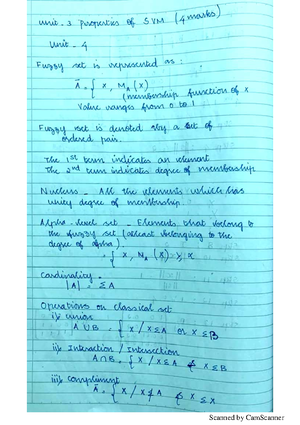 Unit-3 Properties of SVM (4 marks)
Unit - 4
Fuzzy set is represented as :
Ã = { x, MA (x)
(membership function of x
Value ranges from 0 to 1
Fuzzy set is denoted by a set of
ordered pair.
The 1st term indicates an element
The 2nd term indicates degree of membership
Nucleus - All the elements which has
unity degree of membership.
Alpha-level set - Elements that belong to
the fuzzy set (atleast belonging to the
degree of alpha).
= { x, MA (x) ≥ α
Cardinality -
|A| = ΣA
Operations on classical set
i) Union
A ∪ B = { x / x ∈ A or x ∈ B
ii) Interaction / Intersection
A ∩ B = { x / x ∈ A & x ∈ B
iii) Complement
Ā = { x / x ∉ A & x ∈ X
Scanned by CamScanner